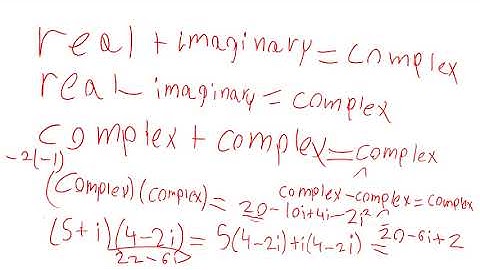 real + imaginary = complex
real - imaginary = complex
complex + complex = complex
-2(-1)
(complex)(complex) = 20-10i+4i-2i²
complex-complex=complex
(5+i)(4-2i) = 5(4-2i)+i(4-2i) = 20-6i+2
22-6i